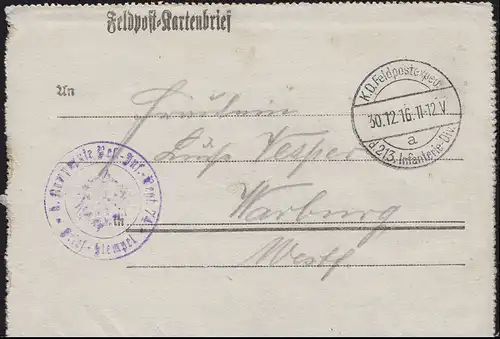 Feldpost-Kartenbrief
K.D. Feldpostexped.
30.12.16. 11-12.V.
a
d. 213. Infanterie-Div.
An
Fräulein
Vesper
Brief-Stempel
Warburg
Westf.